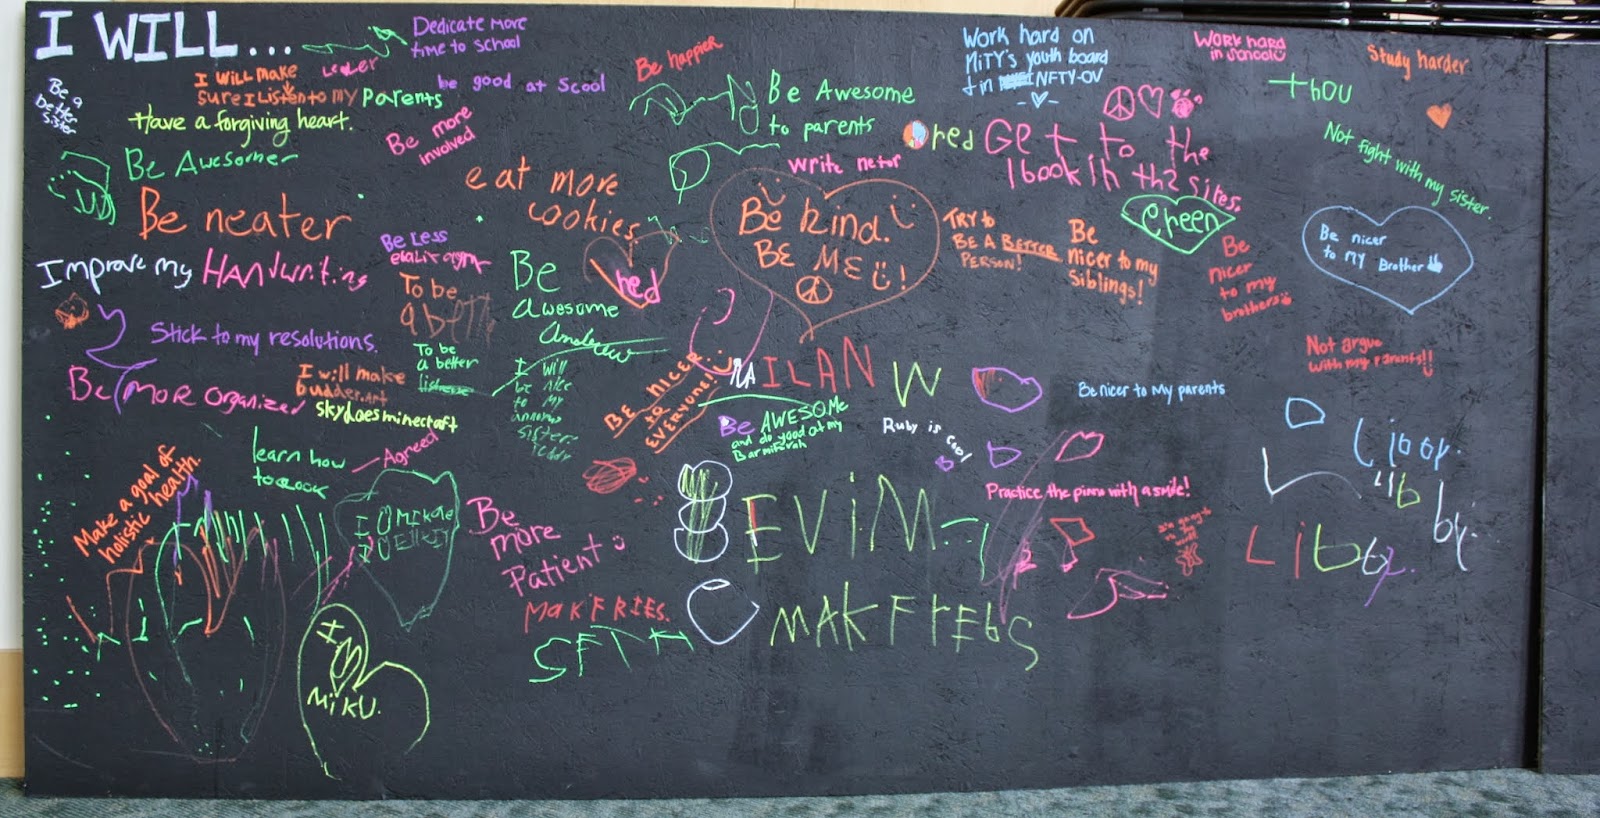 I WILL...
Dedicate more
time to school
Be a
better
sister
I will make
sure I Listen to my Parents
be good at Scool
Have a forgiving heart.
Be more
involved
Be Awesome
Be neater
eat more
cookies
Be happier
Be Awesome
to parents
write netor
Work hard on
MiTY's youth board
+ in INFTY-OV
Work hard
in School
Study harder
thou
red
Get to the
1 book in th2 sires.
Not fight with my sister.
Green
Be kind.
BE ME!
TRY to
BE A BETTER
PERSON!
Be
nicer to my
Siblings!
Be
nicer
to my
brothers
Be nicer
to MY Brother
Improve my HANdwriting
Be Less
To be
a bett
Be
awesome
Andrew
hed
Stick to my resolutions.
To be
a better
I will
be nice
to my
sister.
Be more organized
I will make
budder.art
skydoesminecraft
BE NICER
to
EVERYONE!
ILAN W
Not argue
with my parents!!
Be nicer to My parents
Be AWESOMe
and do good at my
Ruby is cool
learn how
to cook
Agreed
Make a goal of
holistic health.
Be
more
Patient
EViM
Practice the piano with a smile!
by.
Libby.
MAKFRIES.
SETH
MAKFrIEbS
I
MiKU.